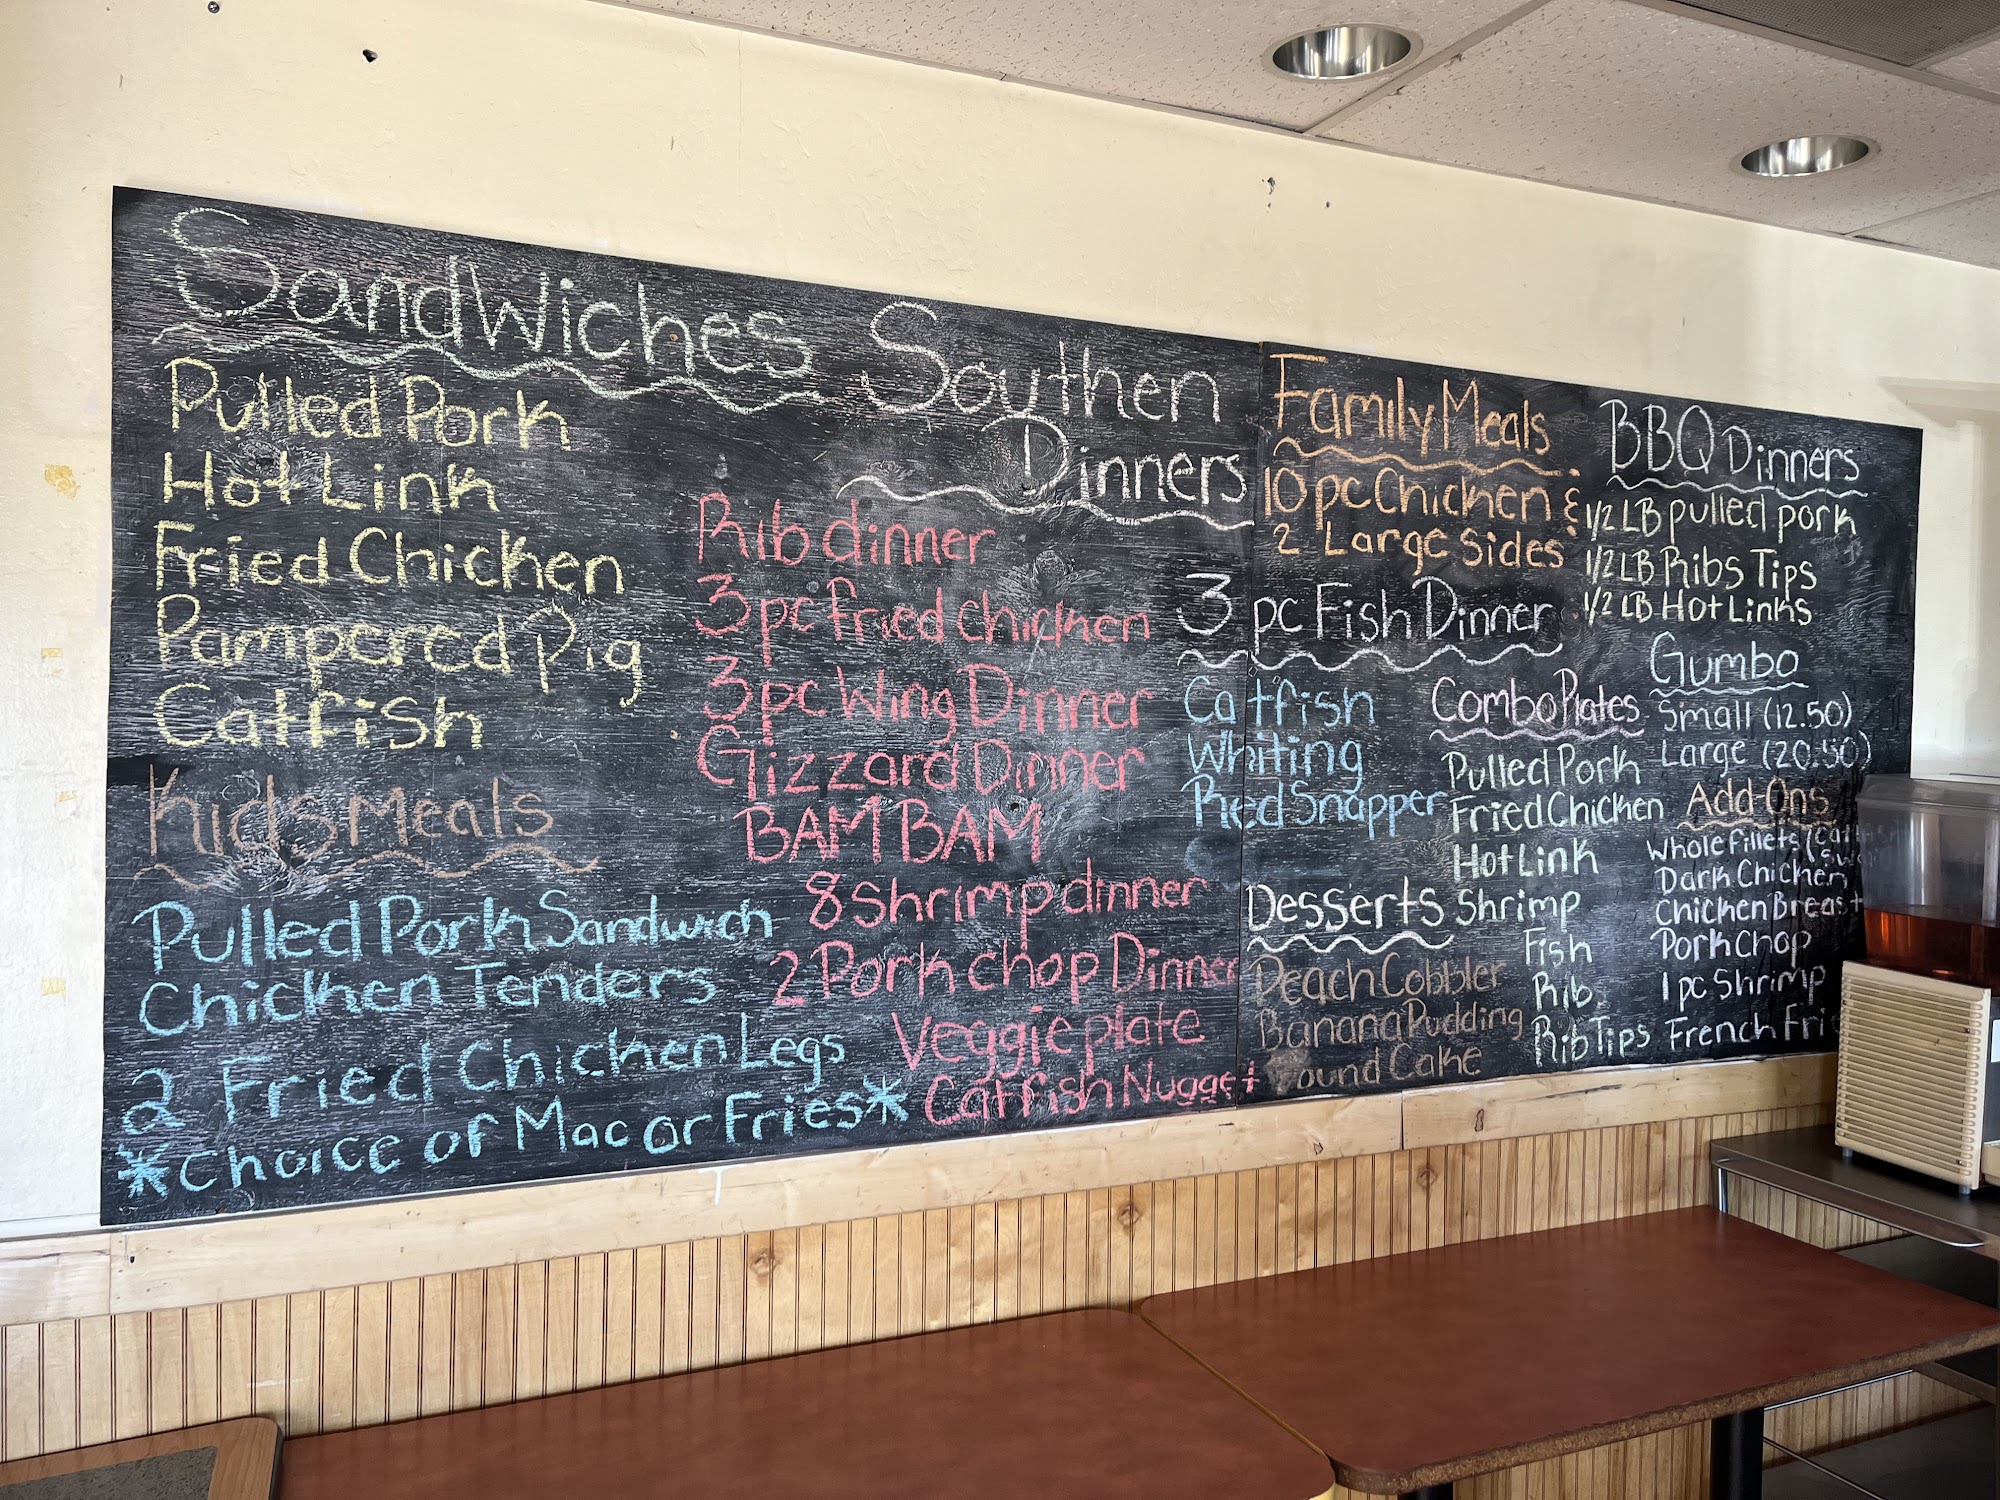 Sandwiches
Pulled Pork
Hot Link
Fried Chicken
Pampered Pig
Catfish
Kids Meals
Pulled Pork Sandwich
Chicken Tenders
2 Fried Chicken Legs
*Choice of Mac or Fries*
Southen
Dinners
Rib dinner
3pc fried chicken
3pc Wing Dinner
Gizzard Dinner
BAM BAM
8 shrimp dinner
2 Pork chop Dinner
Veggie plate
Catfish Nugget
Family Meals
10pc Chicken &
2 Large sides
3 pc Fish Dinner
Catfish
Whiting
Red Snapper
Desserts
Peach Cobbler
Banana Pudding
Pound Cake
Combo Plates
Pulled Pork
Fried Chicken
Hot Link
Shrimp
Fish
Rib
Rib Tips
BBQ Dinners
1/2 LB pulled pork
1/2 LB Ribs Tips
1/2 LB Hot Links
Gumbo
Small (12.50)
Large (20.50)
Add-Ons
Whole Fillets
Dark Chicken
Chicken Breast
Pork Chop
1 pc Shrimp
French Frie